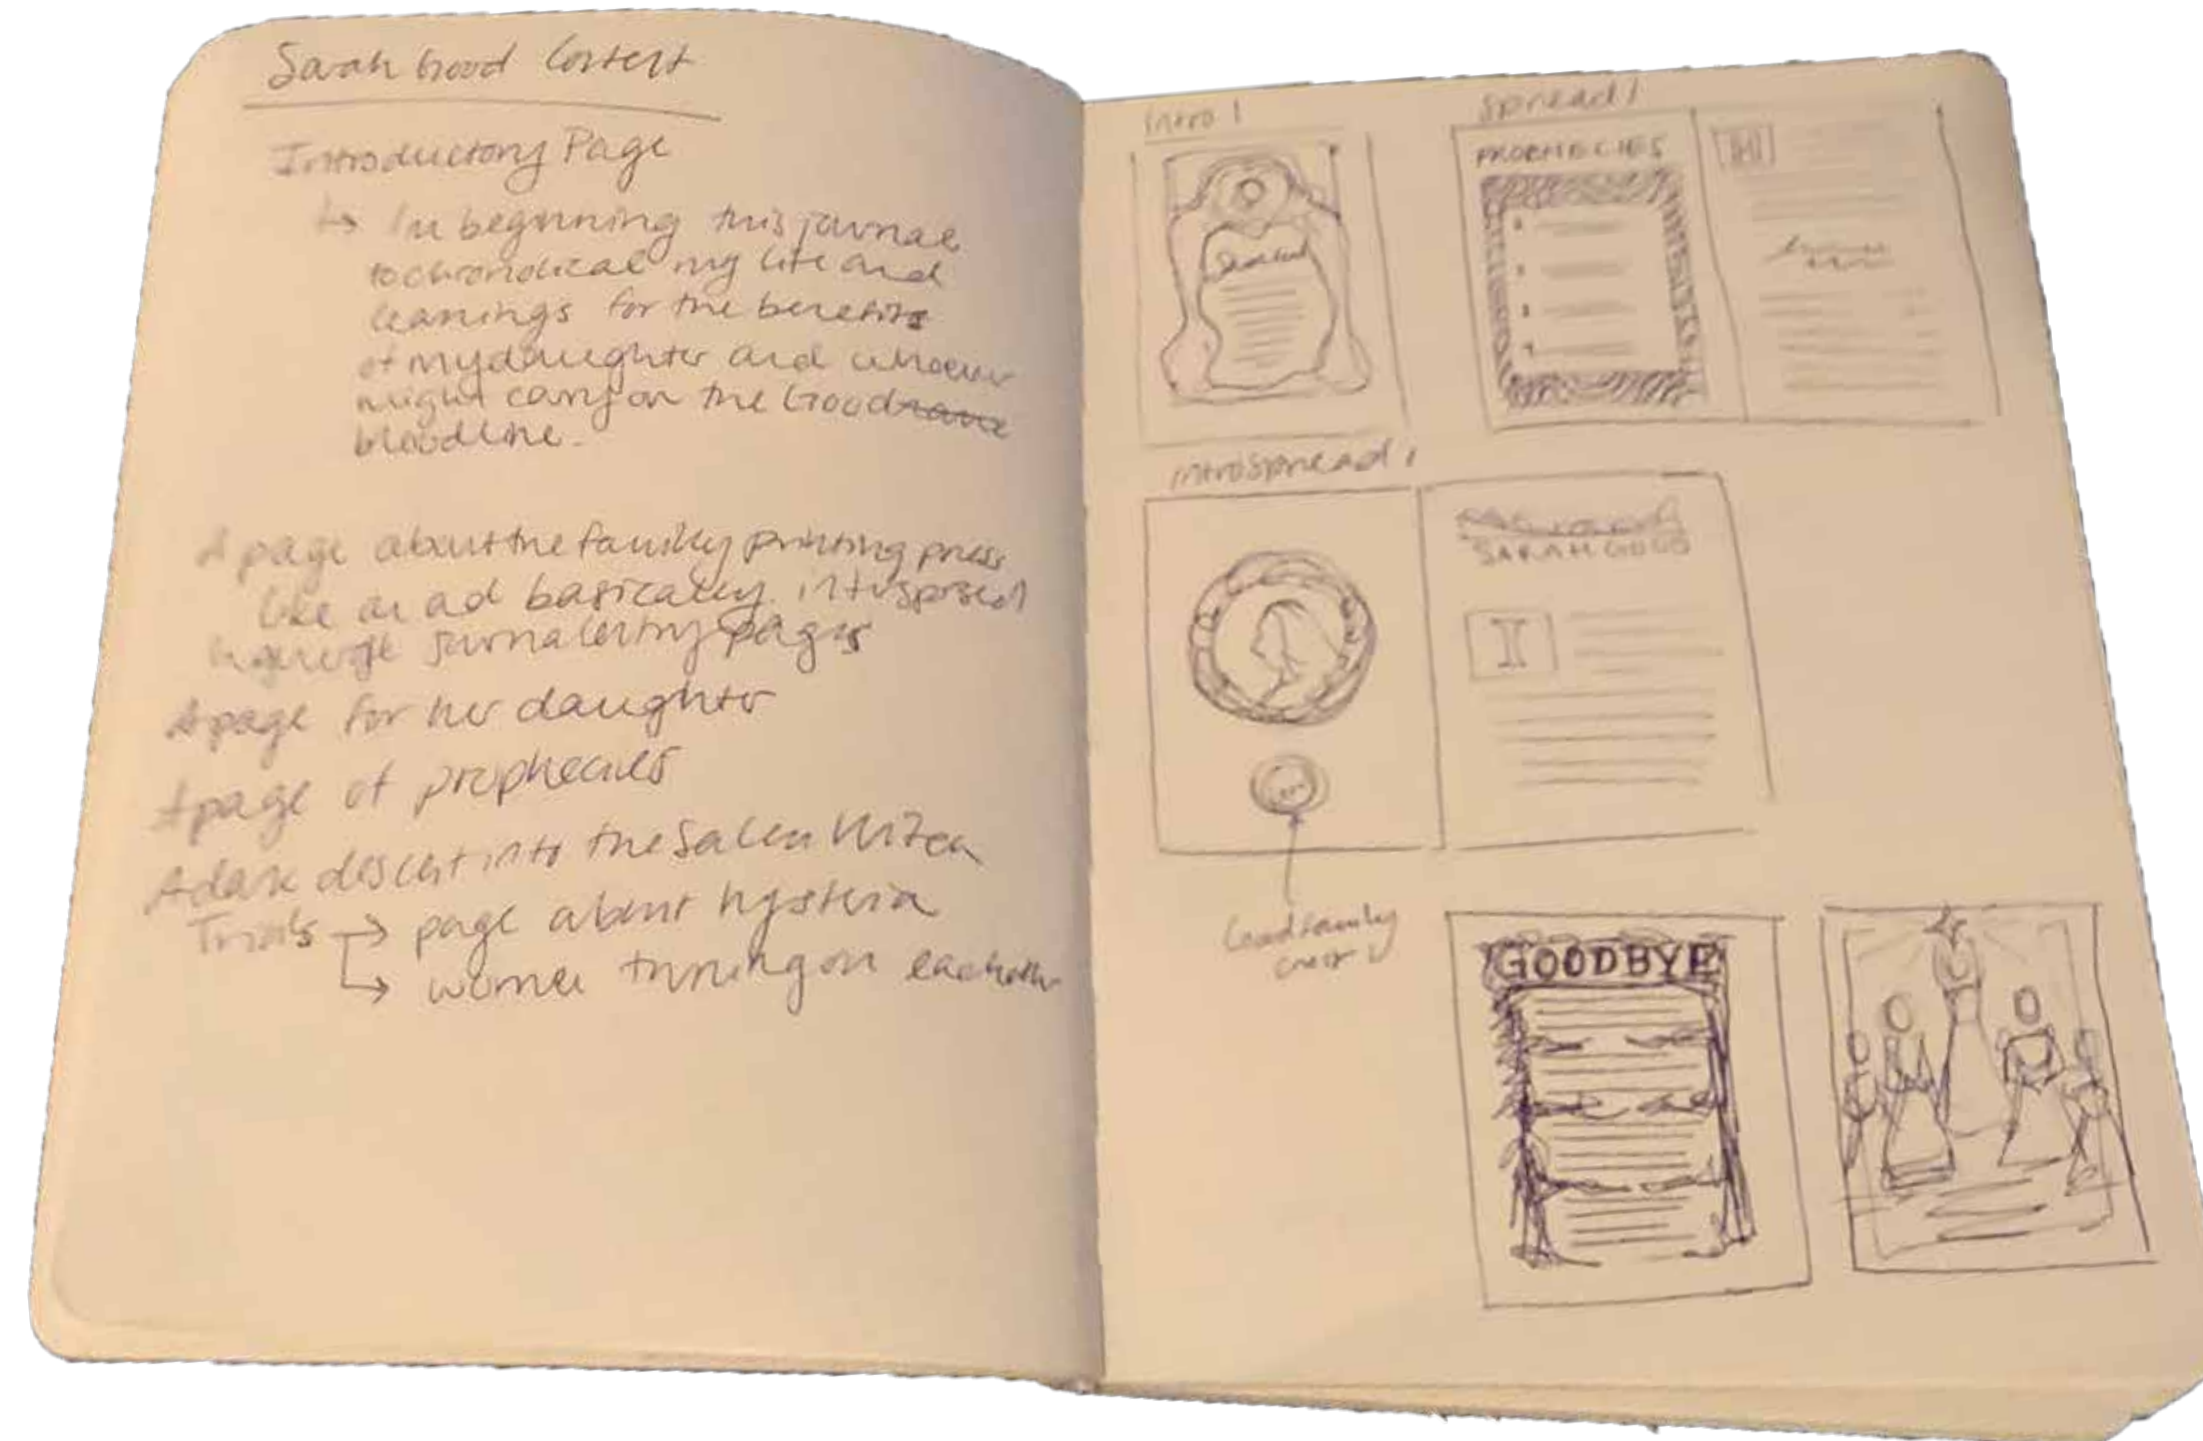 Sarah Good Content
Introductory Page
↳ In beginning this journal
to chronolical my life and
learnings for the benefits
of my daughter and whoever
might carry on the Good name
bloodline.
A page about the family printing press
like an ad basically. interspersed
journal entry pages
A page for her daughter
A page of prophecies
A dark descent into the Salem Witch
Trials → page about hysteria
↳ women turning on each other
intro 1
spread 1
PROPHECIES
H
intro spread 1
SARAH GOOD
I
Good family
crest
GOODBYE